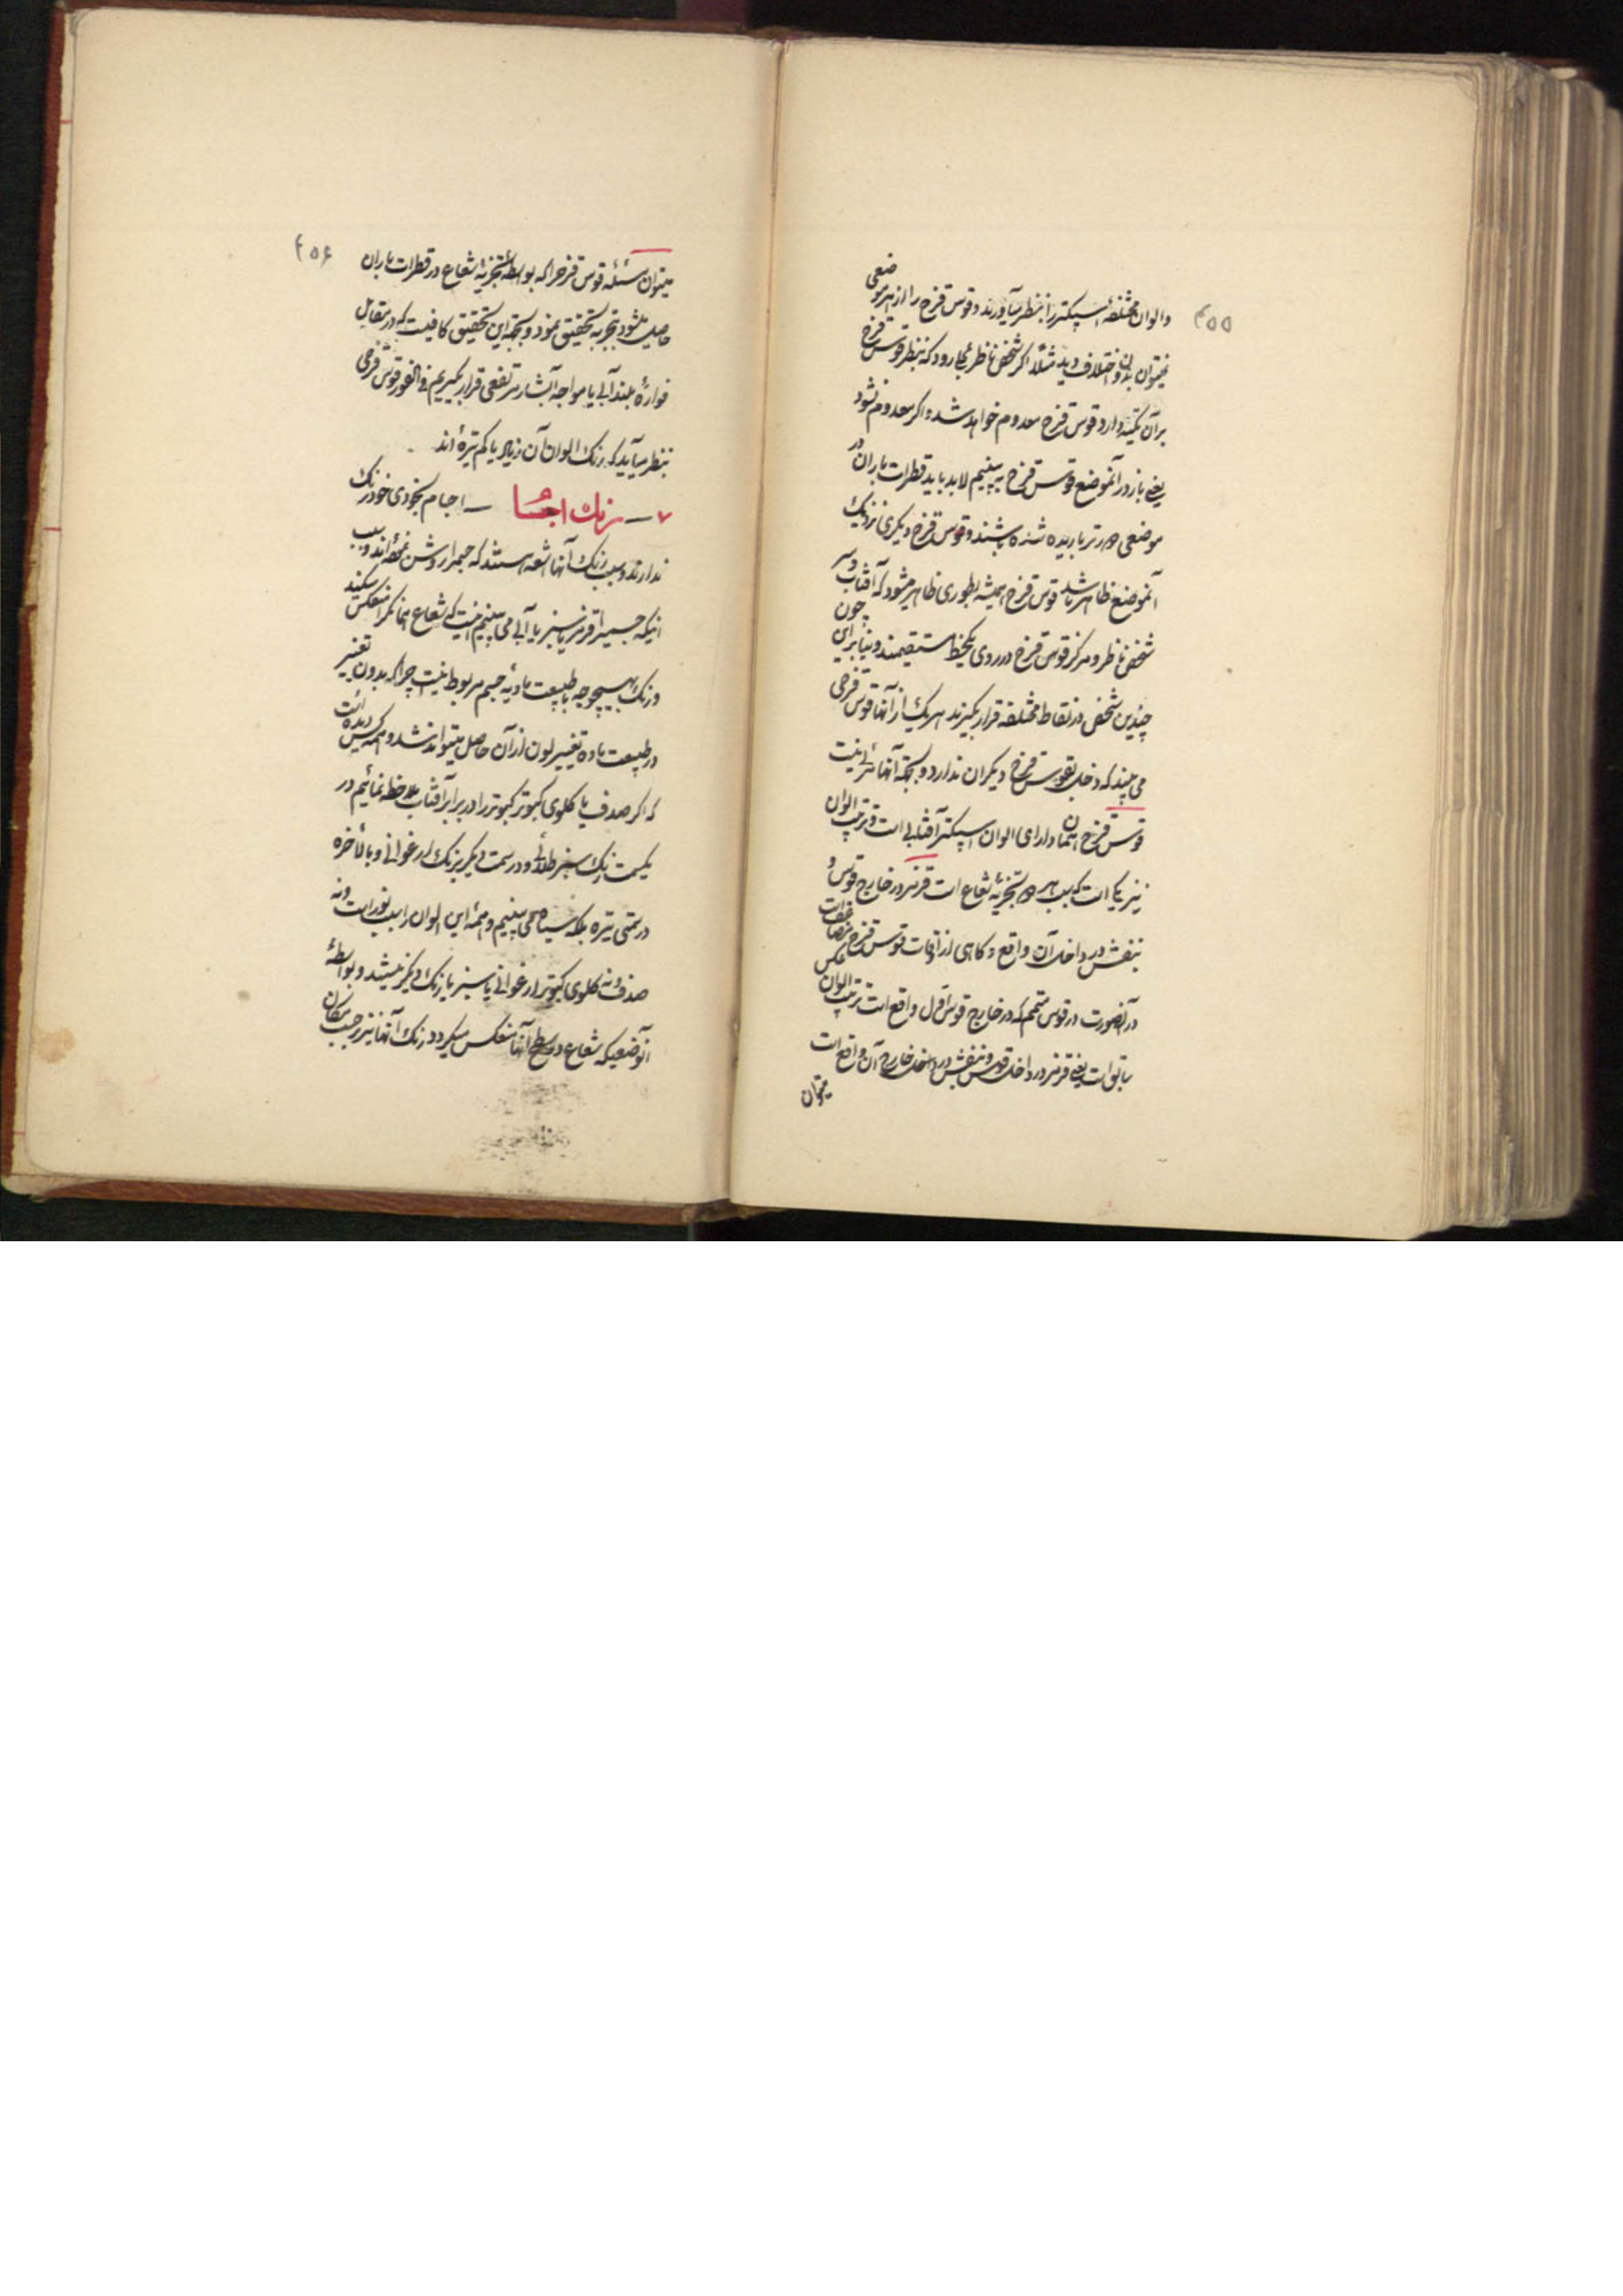 ۲۵۵
والوان مختلفهٔ اسپکتر را بنظر میآورند و قوس قزح را از هر موضعی
نمیتوان بدون اختلاف دید مثلاً اگر شخص ناظر بجا رود که بنظر قوس قزح
بر آن تکیه دارد قوس قزح معدوم خواهد شد و اگر معدوم نشود
یعنی باز در آنموضع قوس قزح به بینیم لابد باید قطرات باران در
موضعی دورتر باریده شده باشند و قوس قزح دیگری نزدیک
آنموضع ظاهر باشد قوس قزح همیشه بطوری ظاهر میشود که آفتاب و سر
شخص ناظر و مرکز قوس قزح در روی یکخط مستقیمند و بنابراین چون
چندین شخص در نقاط مختلفه قرار بگیرند هر یک از آنها قوس قزحی
می بیند که دخلی بقوس قزح دیگران ندارد و بجهة آنها مرئی نیست
قوس قزح آسمان دارای الوان اسپکتر آفتابی است و ترتیب الوان
نیز یکی است که بسبب هر دو تجزیهٔ شعاع است قرمز در خارج قوس و
بنفش در داخل آن واقع و گاهی از اوقات قوس قزح مضاعف است
در آنصورت در قوس متمم که در خارج قوس اول واقع است ترتیب الوان عکس
سابق است یعنی قرمز در داخل قوس و بنفش در خارج آن واقع است
میتوان
۲۵۶
میتوان مسئله قوس قزح را که بواسطهٔ تجزیهٔ شعاع در قطرات باران
حاصل میشود بتجربه تحقیق نمود و بجهة این تحقیق کافیست که در مقابل
فوارهٔ بلند آبی یا مواجه آبشار مرتفعی قرار بگیریم فی الفور قوس قزحی
بنظر میآید که رنک الوان آن زیاد یا کم تیره اند
۷ — رنك اجسا — اجسام بخودی خود رنک
ندارند و سبب رنک آنها اشعه هستند که جسم را روشن نموده اند و سبب
اینکه جسمی را قرمز یا سبز یا آبی می بینیم اینست که شعاع همانکه را منعکس میکنند
و رنک بهیچوجه با طبیعت مادیهٔ جسم مربوط نیست چرا که بدون تغییر
در طبیعت ماده تغییر لون از آن حاصل میتواند شد و همه کس دیده است
که اگر صدف یا گلوی کبوتر را در برابر آفتاب ملاحظه نمائیم در
یکسمت رنک سبز طلائی و در سمت دیگر برنک ارغوانی و بالاخره
در سمتی تیره بلکه سیاه می بینیم و همهٔ این الوان را سبب نور است و نه
صدف و نه گلوی کبوتر ارغوانی یا سبز یا رنک دیگر نمیشد و بواسطهٔ
آنوضعیکه شعاع در سطح آنها منعکس میگردد رنک آنها نیز بر حسب مکان